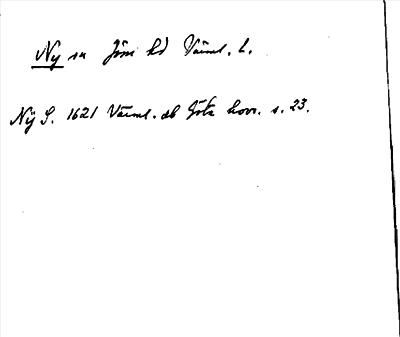 Ny sn Jösse hd Värml. l.
Nÿ S. 1621 Värml. db Göta hovr. s. 23.